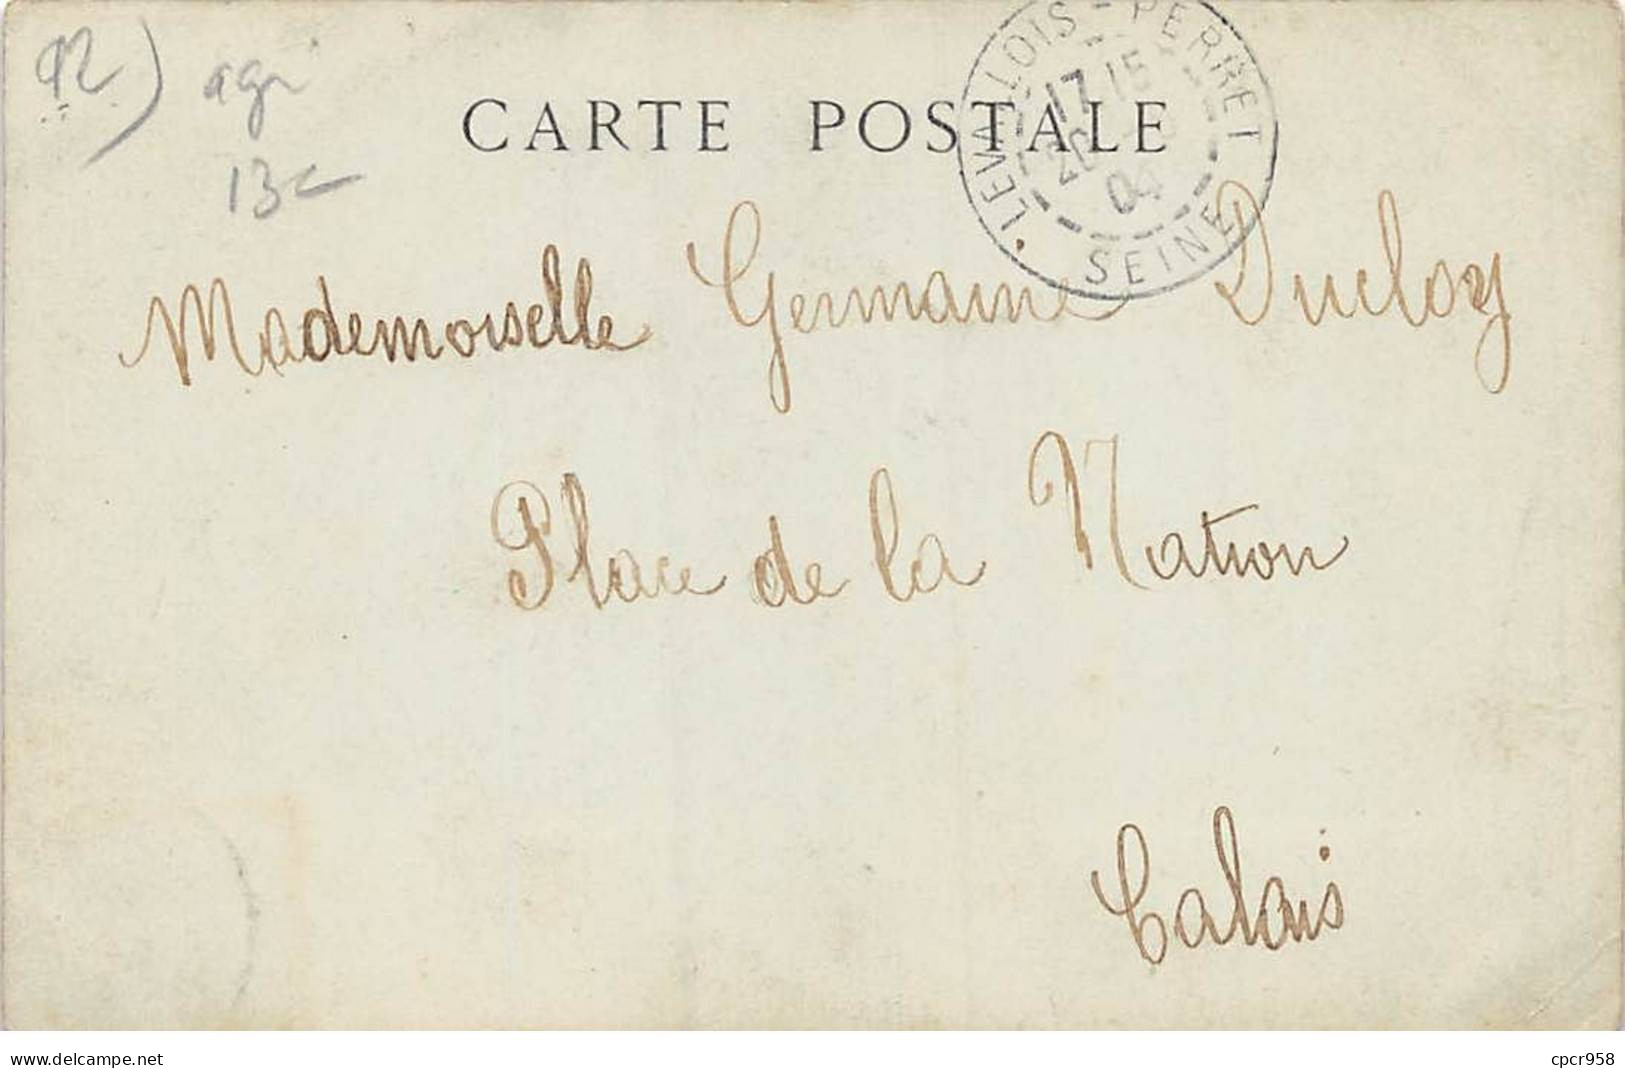 92)
agr
13c
CARTE POSTALE
LEVALLOIS-PERRET
17 15
04
SEINE
Mademoiselle Germaine Ducloy
Place de la Nation
Calais
www.delcampe.net
cpcr958